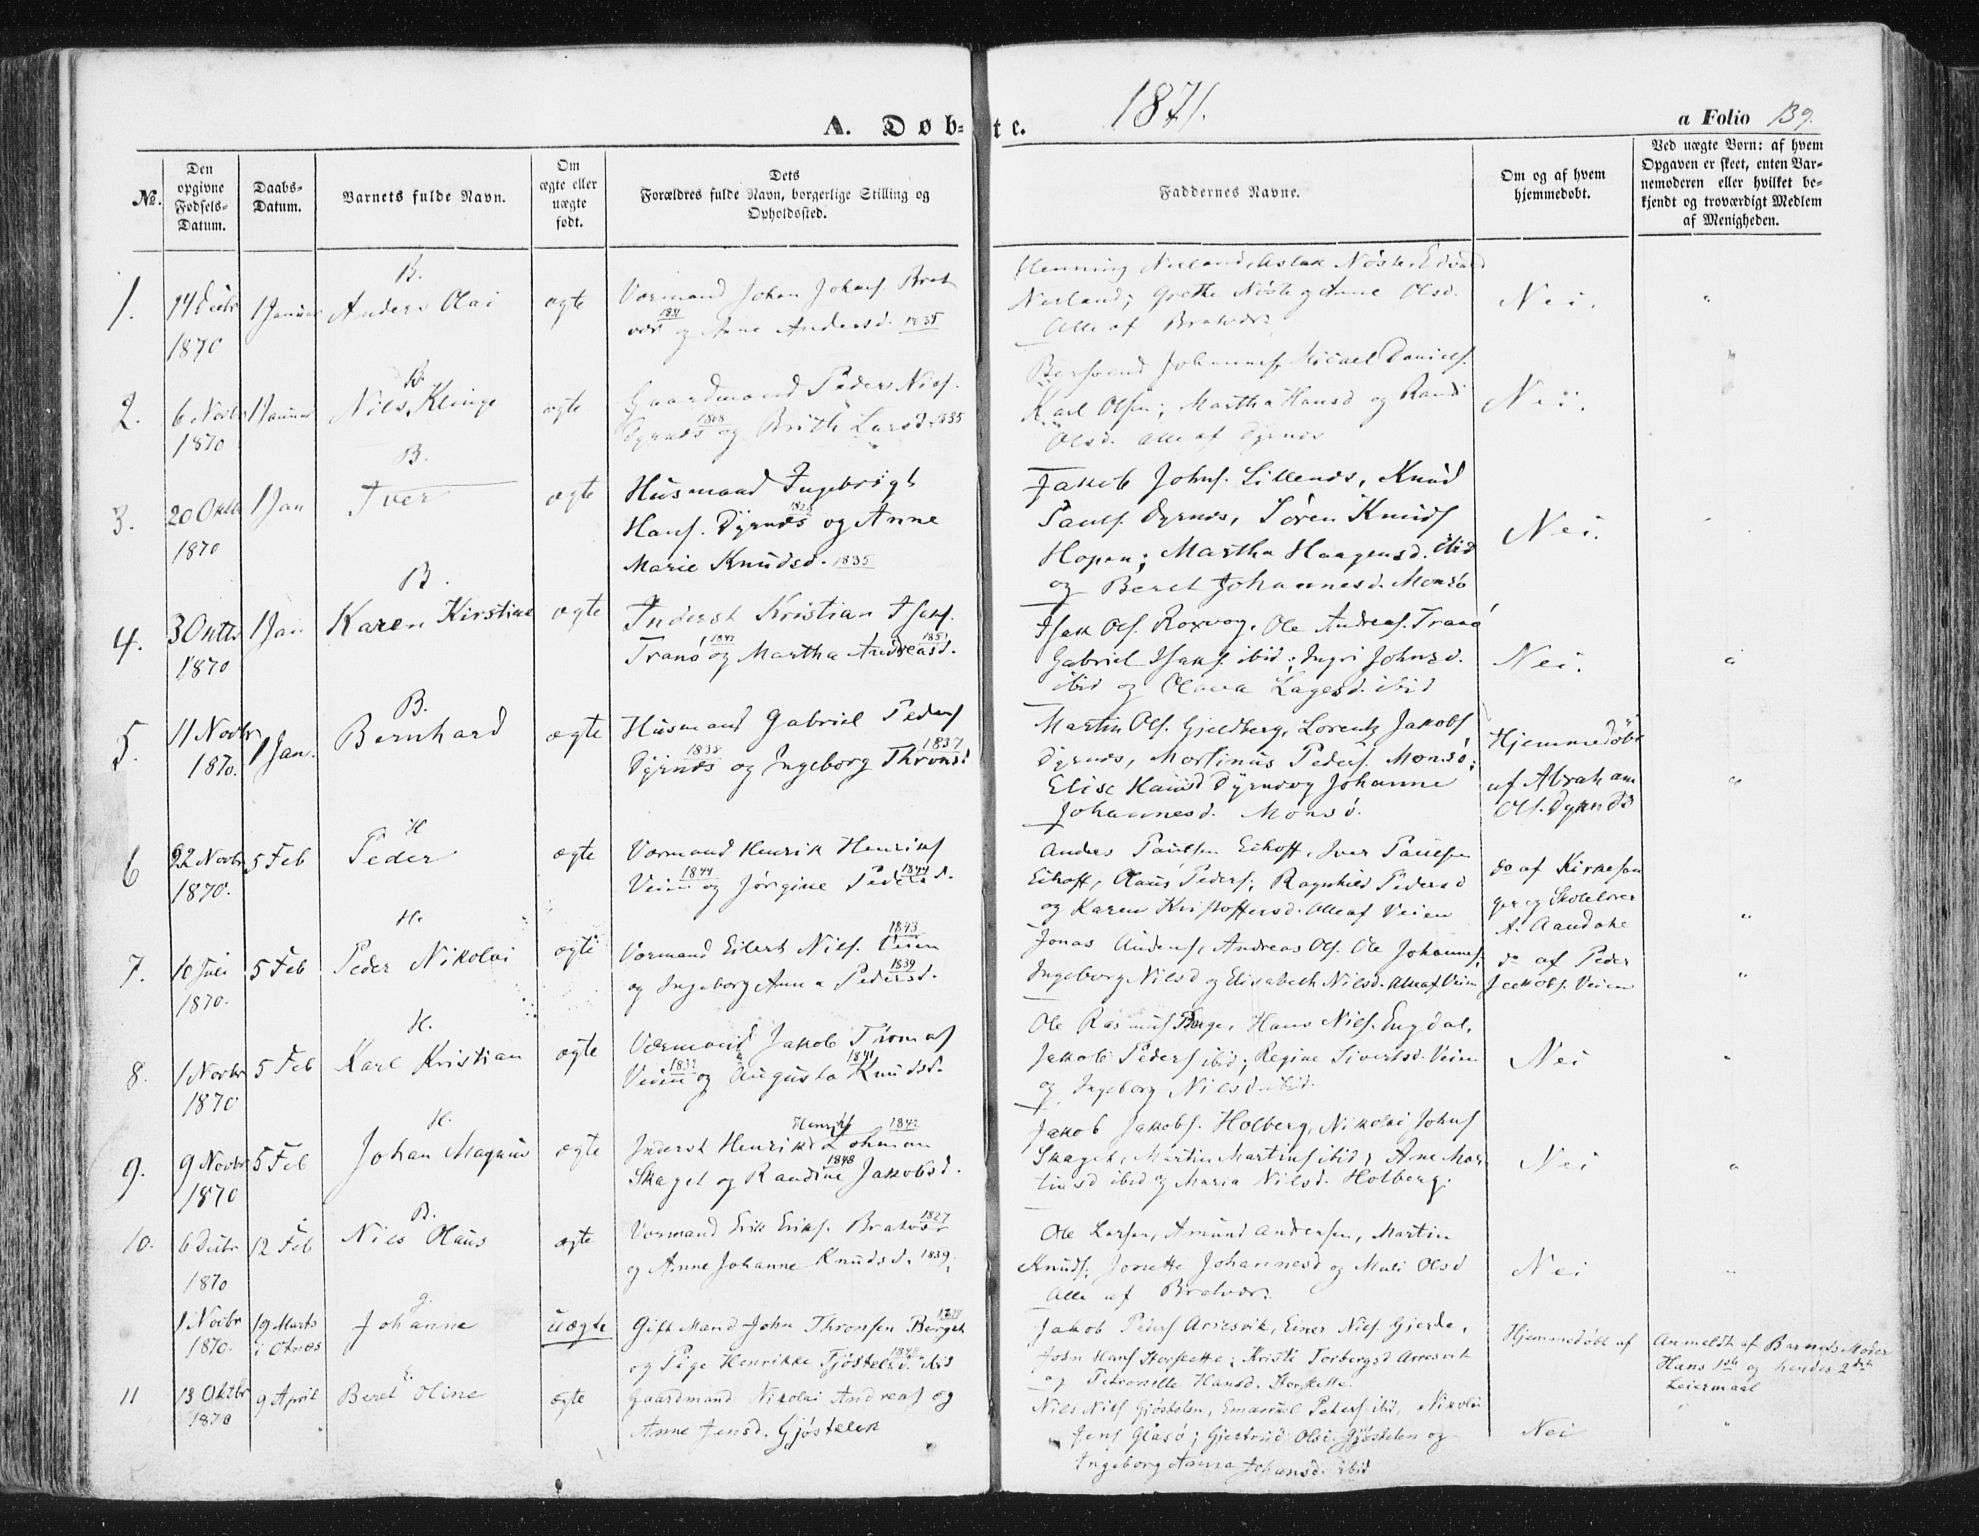 1871.
A. Døb-te.
a Folio 139.
№.
Den opgivne Fødsels-Datum.
Daabs-Datum.
Barnets fulde Navn.
Om ægte eller uægte født.
Dets Forældres fulde Navn, borgerlige Stilling og Opholdssted.
Faddernes Navne.
Om og af hvem hjemmedøbt.
Ved uægte Børn: af hvem Opgaven er skeet, enten Barnemoderen eller hvilket bekjendt og troværdigt Medlem af Menigheden.
B.
1. 14 Decbr 1870
1 Januar
Anders Olai
ægte
Vormand Johan Johans. Brat
vær 1841 og Ane Andersd. 1835
Henning Nerland, Aslak Nøste, Edvard
Nerland; Grethe Nøste og Anne Olsd.
Alle af Bratvær.
Nei.
"
B.
2. 6 Novbr 1870
1 Januar
Nils Klinge
ægte
Gaardmand Peder Niels.
Dyrnæs 1808 og Brith Larsd. 1835
Johannes. Micael Daniels.
Karl Olsen; Martha Hansd og Randi
Olsd. alle af Dyrnæs
Nei.
B.
3. 20 Oktb 1870
1 Jan
Iver
ægte
Husmand Ingebrigt
Hans. Dyrnæs og Anne
Marie Knudsd. 1835
Jakob Johns. Lillenæs, Knud
Pauls. Dyrnæs, Søren Knuds
Hopen; Martha Haagensd. ibid
og Beret Johannesd. Monsø
Nei.
B.
4. 3 Oktb 1870
1 Jan
Karen Kirstine
ægte
Inderst Kristian Isaks.
Tranø og Martha Andreasd. 1851
Isak Ols. Roxvog, Ole Andreas. Tranø
Gabriel Isaks. ibid; Ingri Johnsd.
ibid og Olava Lagesd. ibid
Nei.
"
B.
5. 11 Novbr 1870.
1 Jan.
Bernhard
ægte
Husmand Gabriel Peders
Dyrnæs 1838 og Ingeborg Thronsd 1837
Martin Ols. Gjeldberg, Lorentz Jakobs
Dyrnæs, Martinus Peders. Monsø;
Elise Hansd Dyrnæs og Johanne
Johannesd. Monsø.
Hjemmedøbt
af Abraham
Ols. Dyrnæs
"
H
6 22 Novbr 1870.
5 Feb
Peder
ægte
Vormand Henrik Henriks
Veien 1844 og Jørgine Pedersd. 1844
Anders Paulsen Eihoff, Iver Paulsen
Eihoff, Olaus Peders; Ragnhild Pedersd
og Karen Kristoffersd. Alle af Veien
do af Kirkesan
ger og Skolelærer
A. Aandahe
"
H.
7. 10 Juli 1870.
5 Feb
Peder Nikolai
ægte
Vormand Eilert Niels. Veien 1843
og Ingeborg Anna Pedersd. 1839
Jonas Anders, Andreas Ols. Ole Johannes;
Ingeborg Nilsd og Elisabeth Nilsd. Alle af Veien
do af Peder
Jakobs. Veien
"
H.
8. 1 Novbr 1870
5 Feb
Karl Kristian
ægte
Vormand Jakob Tromas
Veien 1832 og Augusta Knudsd. 1841
Ole Rasmus , Hans Niels. Engdal,
Jakob Peders ibid; Regine Sivertsd. Veien
og Ingeborg Nilsd ibid.
Nei
"
H.
9. 9 Novbr 1870
5 Feb
Johan Magnus
ægte
Inderst Henrik Henriks Lohman 1842
Skaget og Randine Jakobsd. 1848
Jakob Jakobs. Holberg, Nikolai Johns
Skaget, Martin Martins ibid; Ane Mar
tinsd ibid og Maria Nilsd. Holberg.
Nei
"
B.
10. 6 Decbr 1870
12 Feb
Nils Olaus
ægte
Vormand Erik Eriks. Bratvær 1827
og Anne Johanne Knudsd. 1839.
Ole Larsen, Amund Andersen, Martin
Knuds; Jonette Johannesd og Mali Olsd
Alle af Bratvær.
Nei
"
1 Novbr 1870.
19 Marts i Otnæs
Johanne
uægte
Gift Mand John Thronsen Berget 1828
og Pige Henrikke Tjøstelsd. ibid 1848
Jakob Peders Arresvik, Einer Niels Gjerde,
John Hans Korsætte; Kristi Torbergsd Arresvik
og Petronelle Hansd. Korsætte.
Hjemmedøbt af
Anmeldt af Barnets Moder
Hans 1ste og hendes 2det
Leiermaal
11 13 Oktbr 1870
9 April
Beret Oline
ægte
Gaardmand Nikolai Andreas og
Anne Jensd. Gjøstelen
Nils Niels Gjøstelen, Emanuel Peters ibid, Nikolai
Jens Glasø; Gjertrud Olsd. Gjøstelen og
Ingeborg Anna Johansd. ibid
Nei
"